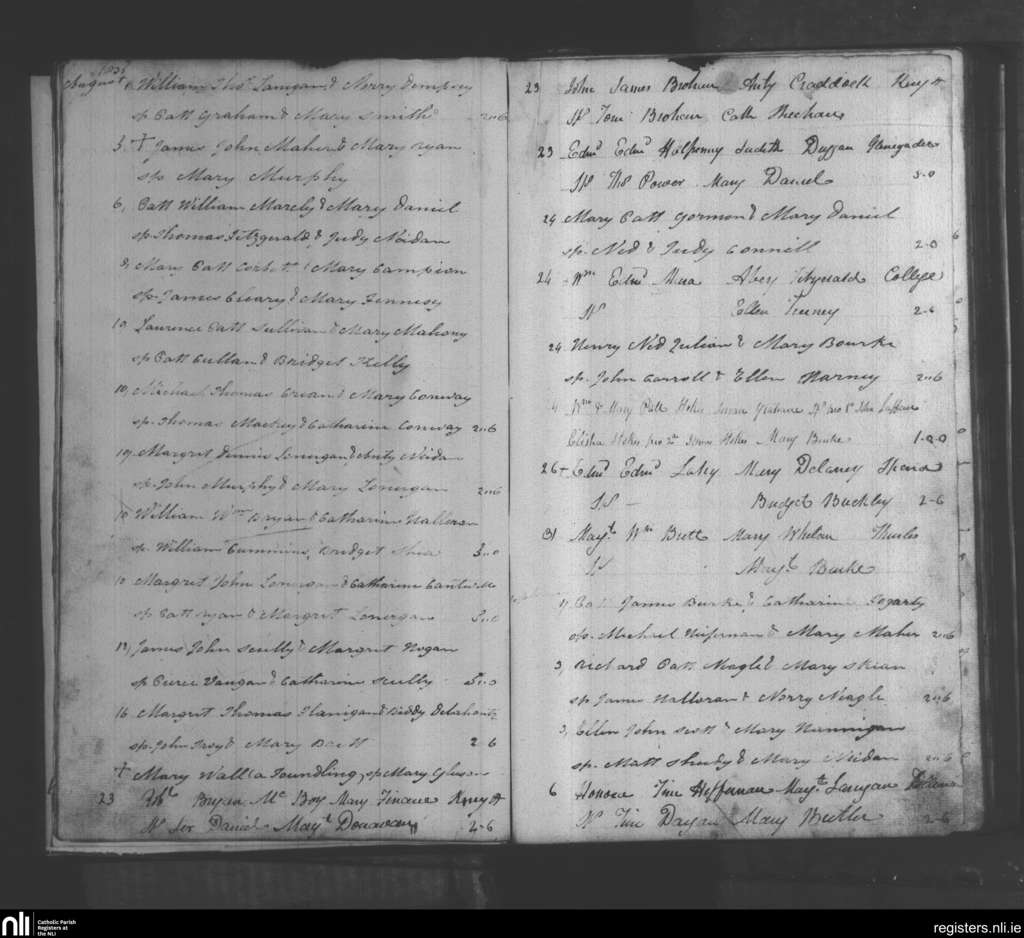 August
William Thos Lanigan & Norry Dempsey
sp. Patt Graham & Mary Smith 2..6
5. + James John Maher & Mary Ryan
sp. Mary Murphy
6, Patt William Marely & Mary Daniel
sp. Thomas Fitzgerald & Judy Neidan
Mary Patt Corbett & Mary Campion
sp. James Cleary & Mary Fennesy
10 Laurence Patt Sullivan & Mary Mahony
sp. Patt Cullan & Bridget Kelly
10, Michael Thomas Crean & Mary Conway
sp. Thomas Mackey & Catharine Conway 2..6
Margrit Dennis Lonergan & Neidan
sp. John Murphy & Mary Lonergan 2..6
William Wm Bryan & Catharine Halloran
sp. William Cummins, Bridget Shea
Margrit John Lonergan & Catharine
sp. Patt Ryan & Margrit Lonergan
James John Scully & Margrit Hogan
sp. Pierce Vaugan & Catharine Scully
16 Margrit Thomas Flanigan & Biddy Delahonty
sp. John Troy & Mary Brett 2..6
+ Mary Wall (a Foundling, sp. Mary Gleeson
23 Bryan Mc Boy Mary
Daniel Mayt Donavan 2-6
23 John James Brohour Anty Craddock
Sp Tom Brohour Cath Meehan
23 Edmd Edmd Halpenny Judith Duggan
Sp Ths Power Mary Daniel
24 Mary Patt Gormon & Mary Daniel
sp. Ned & Judy Connill 2-0
24 Wm Edmd Mara Abey Fitzgerald College
Sp Ellen Tierney 2-6
24 Henry Ned Julian & Mary Bourke
sp. John Carroll & Ellen Harney 2..6
Wm & Mary Patt Stokes Susan
Elisha Stokes pro 2d James Stokes Mary Burke
26 + Edmd Edmd Lahy Mary Delaney
Sp — Budget Buckley 2-6
31 Mayt Wm Brett Mary Whelan Thurles
Sp Mayt Burke
Patt James Burke & Catharine Fogarty
sp. Michael Heifernan & Mary Maher 2..6
3, Richard Patt Neagle & Mary Skian
sp. James Halloran & Norry Neagle 2..6
3, Ellen John Scott & Mary Hannigan
sp. Matt Sheehy & Mary Neidan
6 Honora Tim Heffernan Mayt Lanigan
Sp Tim Dayan Mary Butler 2-6
nli
Catholic Parish
Registers at
the NLI
registers.nli.ie